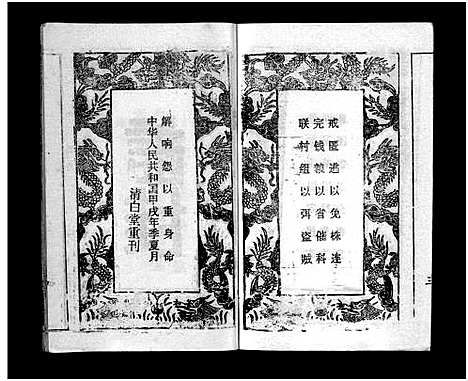 戒匿逃以免株连
完钱粮以省催科
联村组以弭盗贼
解响怨以重身命
中华人民共和国甲戌年季夏月
清白堂重刊
三